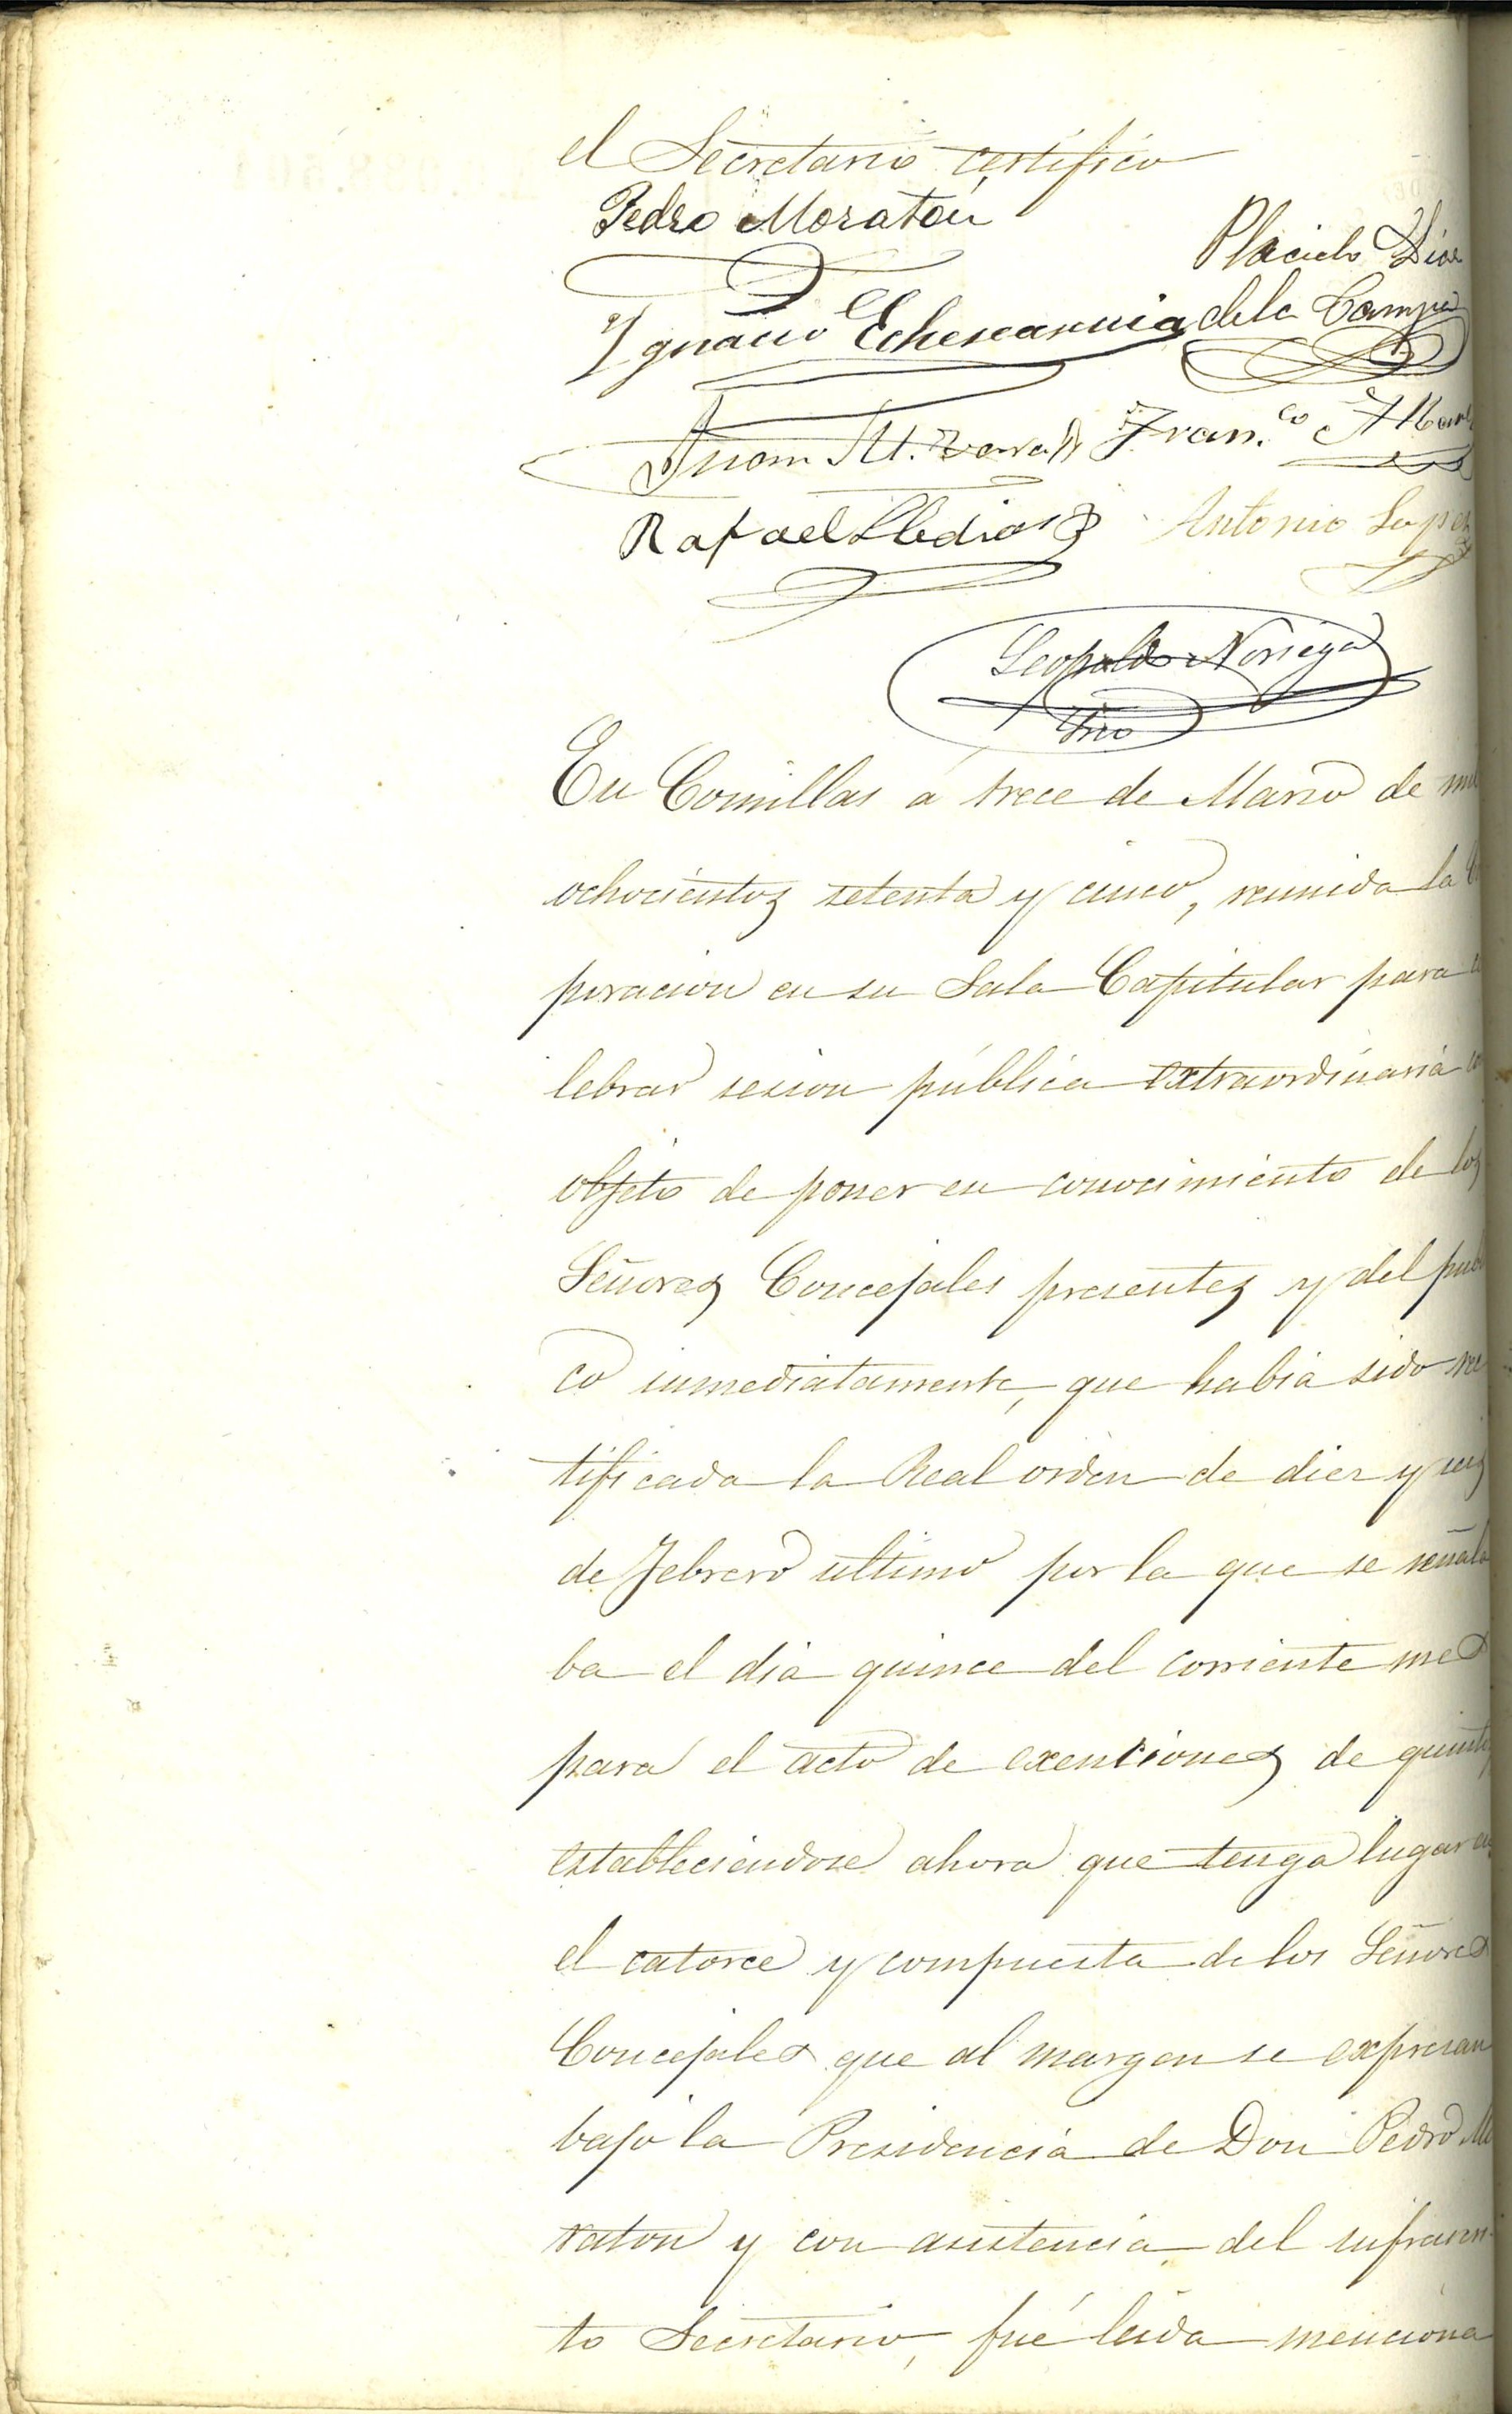 el Secretario certifico
Pedro Moratón
Placido Diaz
Ygnacio Echevarria de la Campa
Juan M. Fran.co
Rafael Antonio Lopez
Leopoldo Noriega
Srio
En Comillas á trece de Marzo de mil
ochocientos setenta y cinco, reunida la
poracion en su Sala Capitular para
lebrar sesion pública extraordinaria
objeto de poner en conocimiento de los
Señores Concejales presentes y del
co inmediatamente, que habia sido rec
tificada la Real orden de diez y seis
de Febrero ultimo por la que se señala
ba el dia quince del corriente mes
para el acto de exenciones de quintos
estableciendose ahora que tenga lugar en
el catorce y compuesta de los Señores
Concejales que al margen se expresan
bajo la Presidencia de Don Pedro Mo
raton y con asistencia del infrascri
to Secretario, fué leida menciona